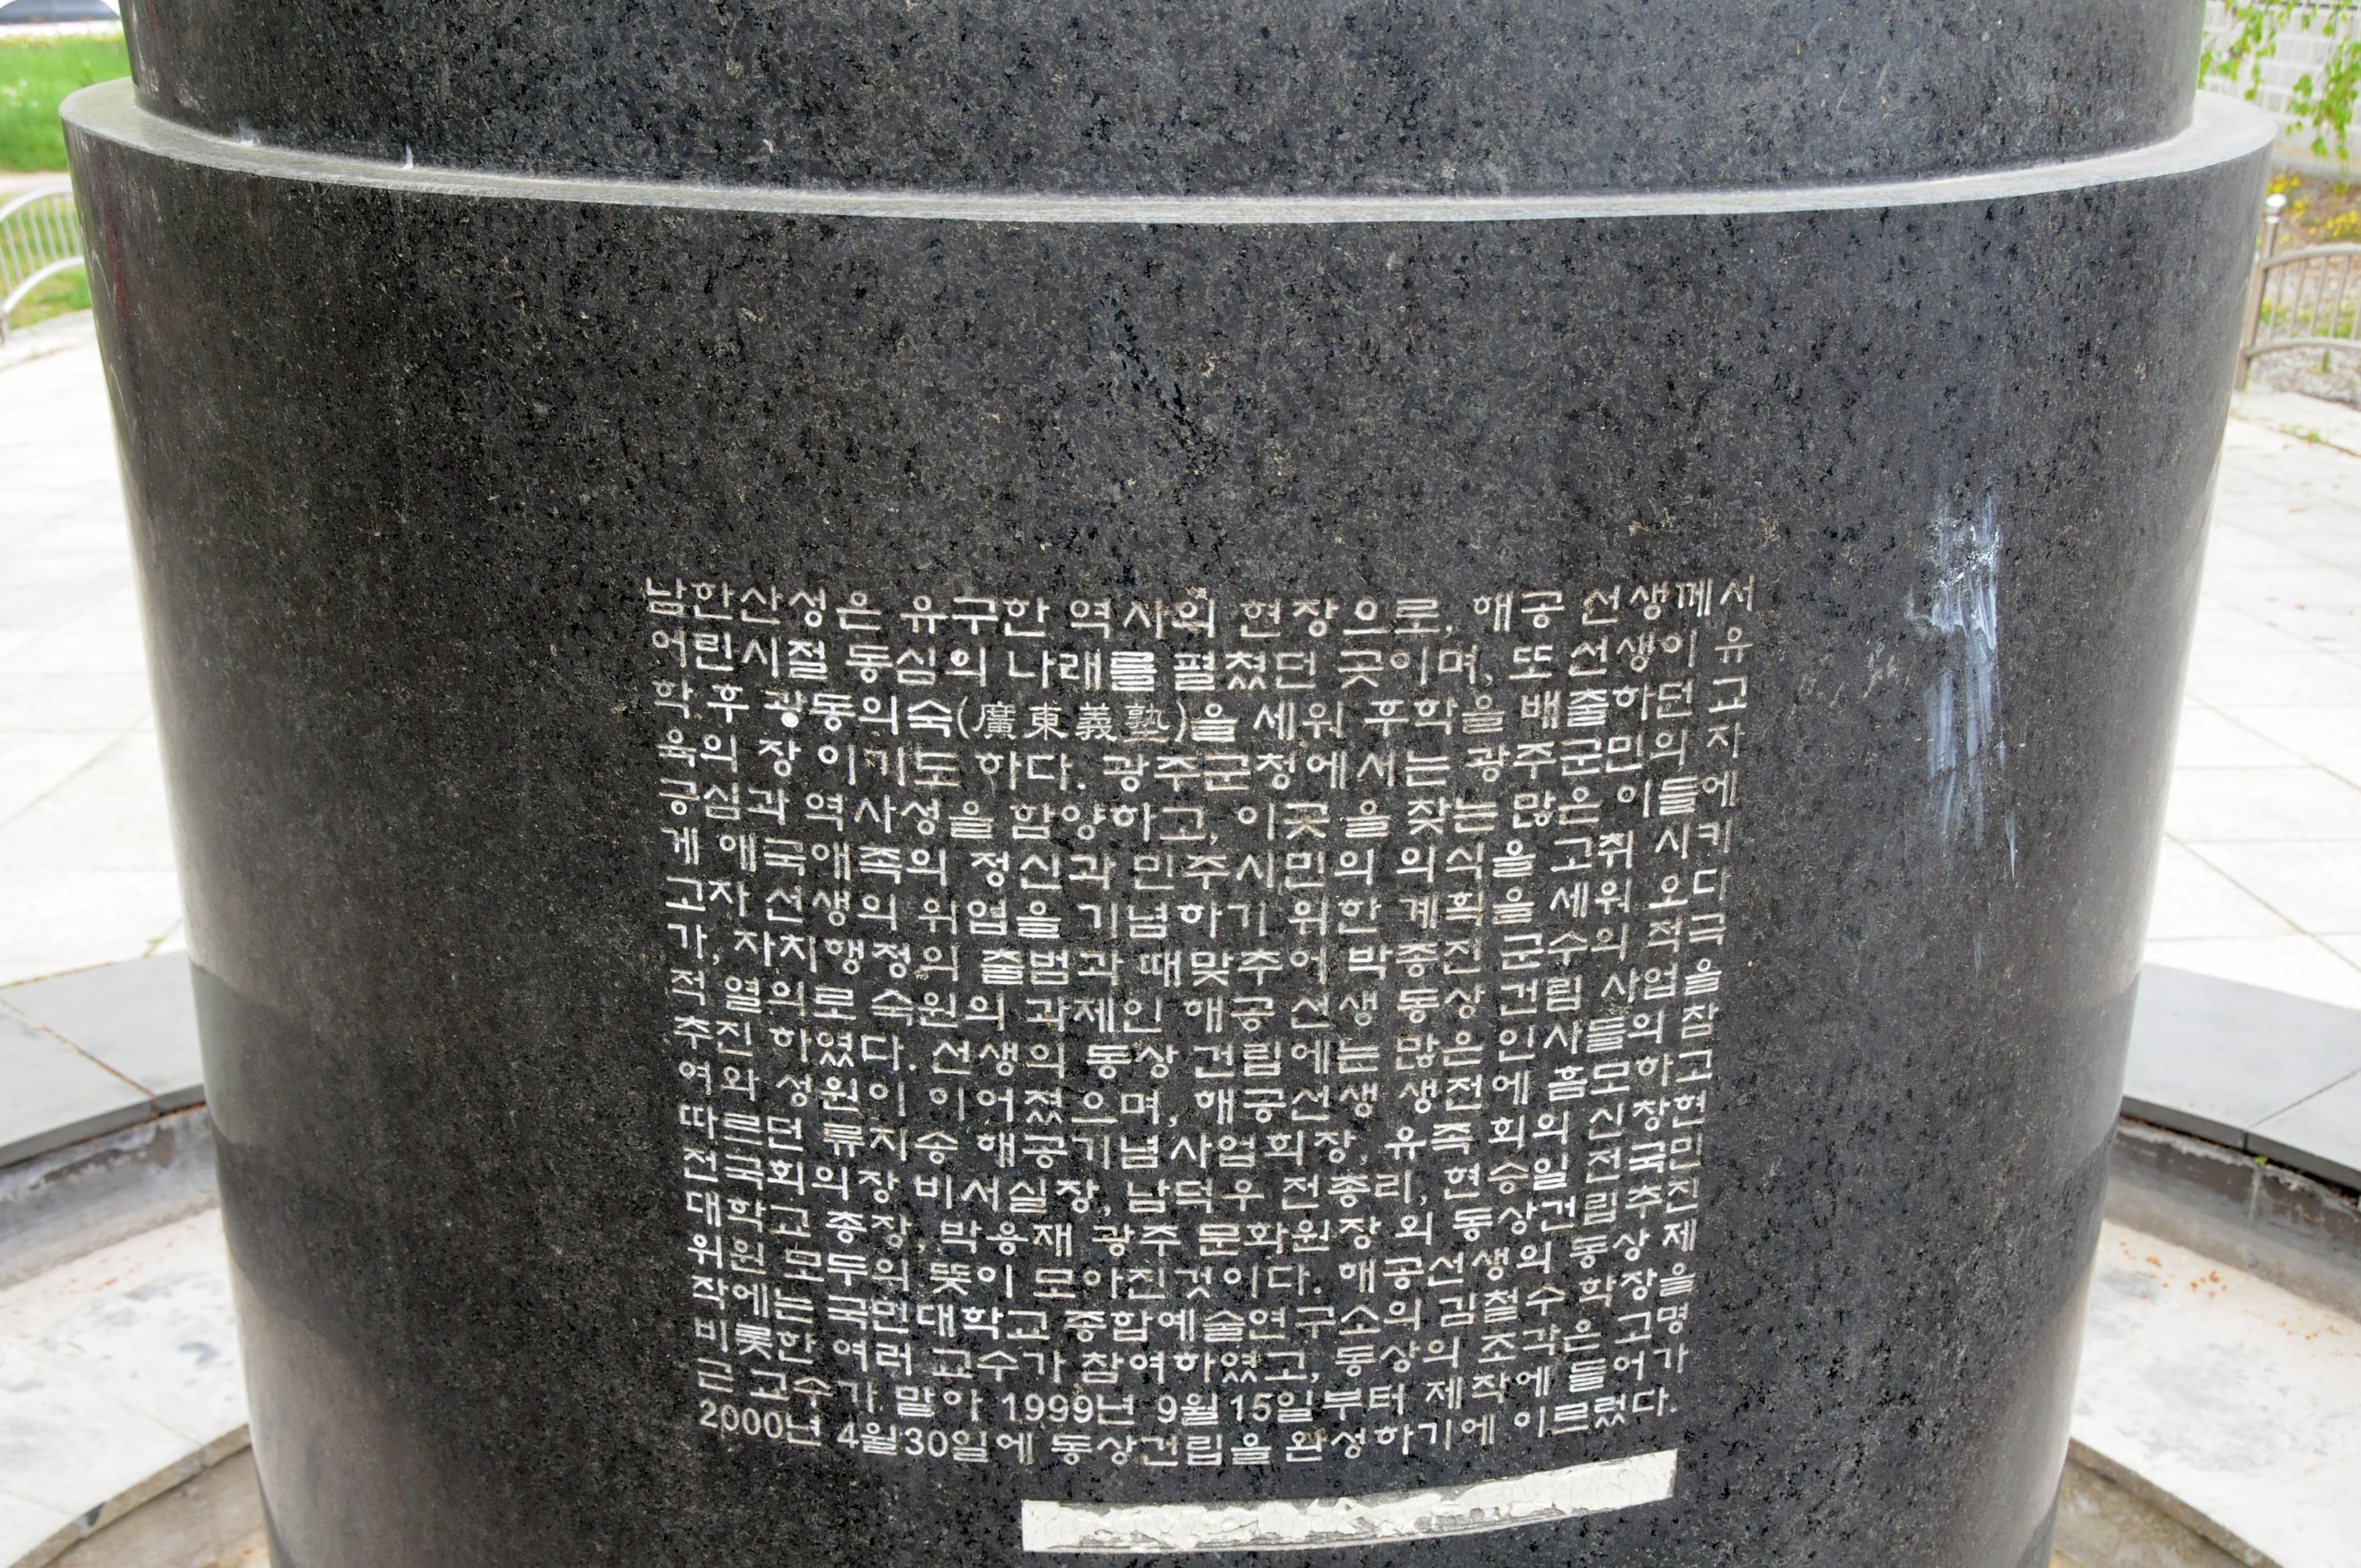 남한산성은 유구한 역사의 현장으로, 해공 선생께서
어린시절 동심의 나래를 펼쳤던 곳이며, 또 선생이 유
학 후 광동의숙(廣東義塾)을 세워 후학을 배출하던 교
육의 장 이기도 하다. 광주군청에서는 광주군민의 자
긍심과 역사성을 함양하고, 이곳을 찾는 많은 이들에
게 애국애족의 정신과 민주시민의 의식을 고취 시키
고자 선생의 위업을 기념하기 위한 계획을 세워 오다
가, 자치행정의 출범과 때맞추어 박종진 군수의 적극
적 열의로 숙원의 과제인 해공 선생 동상 건립 사업을
추진 하였다. 선생의 동상 건립에는 많은 인사들의 참
여와 성원이 이어졌으며, 해공선생 생전에 흠모하고
따르던 류지승 해공기념사업회장, 유족 회의 신창현
전국회의장 비서실장, 남덕우 전총리, 현승일 전국민
대학교 총장, 박용재 광주 문화원장 외 동상건립추진
위원 모두의 뜻이 모아진것이다. 해공선생의 동상 제
작에는 국민대학교 종합예술연구소의 김철수 학장을
비롯한 여러 교수가 참여하였고, 동상의 조각은 고명
근 교수가 맡아 1999년 9월15일부터 제작에 들어가
2000년 4월30일에 동상건립을 완성하기에 이르렀다.